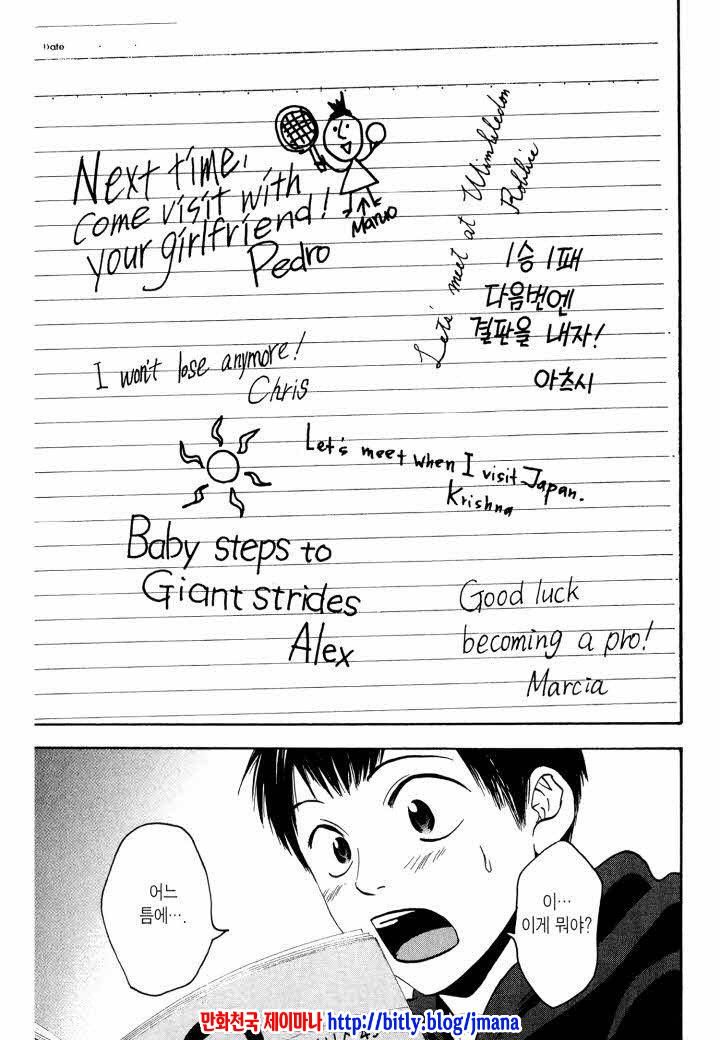 Date
Next time,
come visit with
your girlfriend!
Pedro
Maruo
Let's meet at Wimbledon
Robbie
1승 1패
다음번엔
결판을 내자!
아츠시
I won't lose anymore!
Chris
Let's meet when I visit Japan.
Krishna
Baby steps to
Giant strides
Alex
Good luck
becoming a pro!
Marcia
이…
이게 뭐야?
어느
틈에….
만화천국 제이마나 http://bitly.blog/jmana